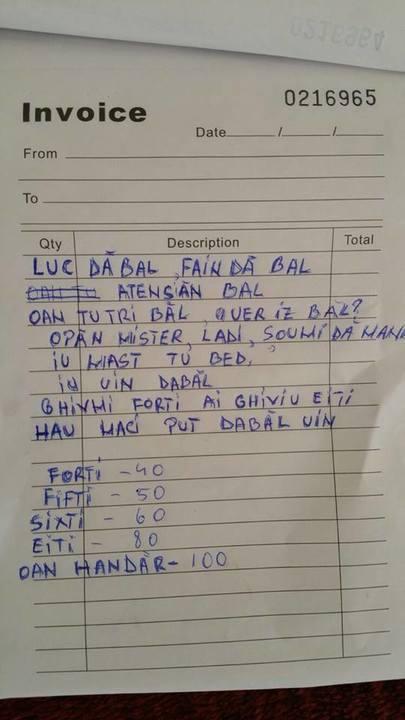 0216964
0216965
Invoice
Date / /
From
To
Qty Description Total
LUC DĂ BAL, FAIN DĂ BAL
ATENȘĂN BAL
OAN TU TRI BĂL, QUER IZ BĂL?
OPĂN MISTER, LADI, SOUMI DĂ MANĂ
IU MAST TU BED.
IU UIN DABĂL
GHIVMI FORTI AI GHIVIU EITI
HAU MACI PUT DABĂL UIN
FORTI - 40
FIFTI - 50
SIXTI - 60
EITI - 80
OAN HANDĂR - 100